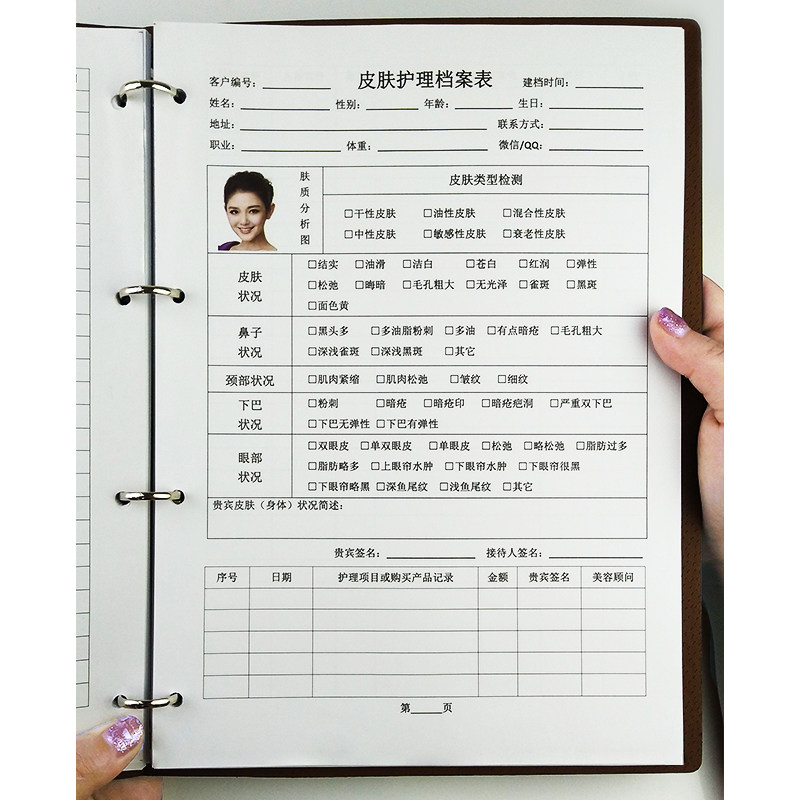 客户编号：______ 皮肤护理档案表 建档时间：______
姓名：______ 性别：______ 年龄：______ 生日：______
地址：______ 联系方式：______
职业：______ 体重：______ 微信/QQ：______
肤质分析图 皮肤类型检测
□干性皮肤 □油性皮肤 □混合性皮肤
□中性皮肤 □敏感性皮肤 □衰老性皮肤
皮肤状况 □结实 □油滑 □洁白 □苍白 □红润 □弹性
□松弛 □晦暗 □毛孔粗大 □无光泽 □雀斑 □黑斑
□面色黄
鼻子状况 □黑头多 □多油脂粉刺 □多油 □有点暗疮 □毛孔粗大
□深浅雀斑 □深浅黑斑 □其它
颈部状况 □肌肉紧缩 □肌肉松弛 □皱纹 □细纹
下巴状况 □粉刺 □暗疮 □暗疮印 □暗疮疤洞 □严重双下巴
□下巴无弹性 □下巴有弹性
眼部状况 □双眼皮 □单双眼皮 □单眼皮 □松弛 □略松弛 □脂肪过多
□脂肪略多 □上眼帘水肿 □下眼帘水肿 □下眼帘很黑
□下眼帘略黑 □深鱼尾纹 □浅鱼尾纹 □其它
贵宾皮肤（身体）状况简述：
贵宾签名：______ 接待人签名：______
序号 日期 护理项目或购买产品记录 金额 贵宾签名 美容顾问
第______页